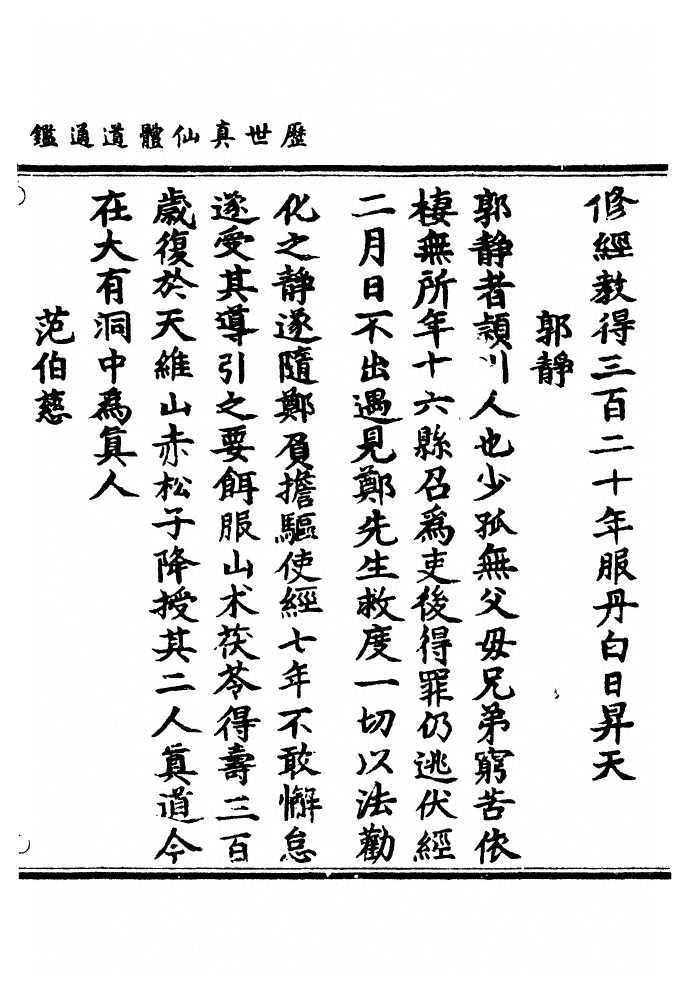 歷世真仙體道通鑑
修經教得三百二十年服丹白日昇天
郭靜
郭靜者潁川人也少孤無父母兄弟窮苦依
棲無所年十六縣召爲吏後得罪仍逃伏經
二月日不出遇見鄭先生救度一切以法勸
化之靜遂隨鄭負擔驅使經七年不敢懈怠
遂受其導引之要餌服山术茯苓得壽三百
歲復於天維山赤松子降授其二人真道今
在大有洞中爲真人
范伯慈